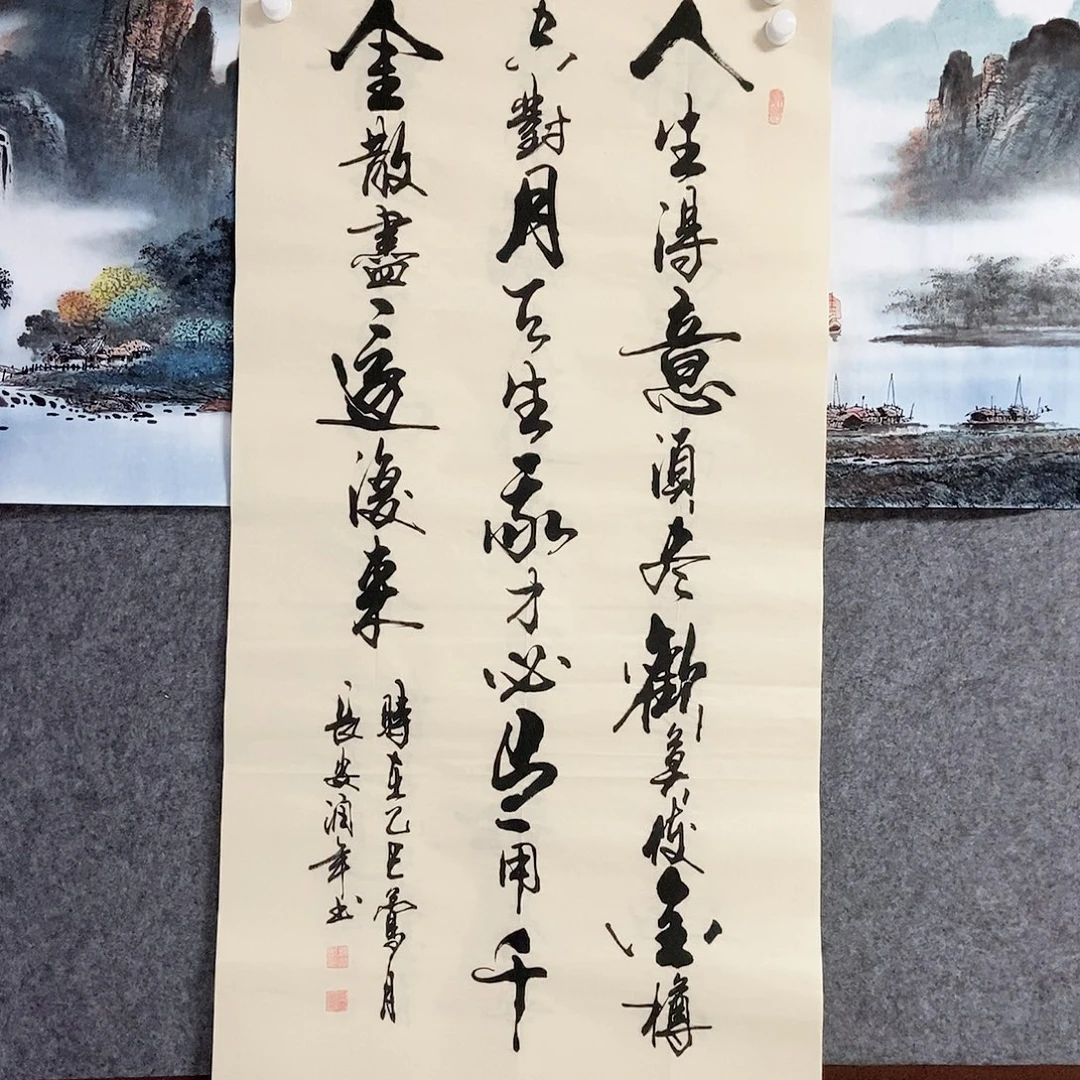 人生得意須尽歡莫使金樽
空對月天生我才必有用千
金散盡〻還復來
時在乙巳鶯月
長安潤年书